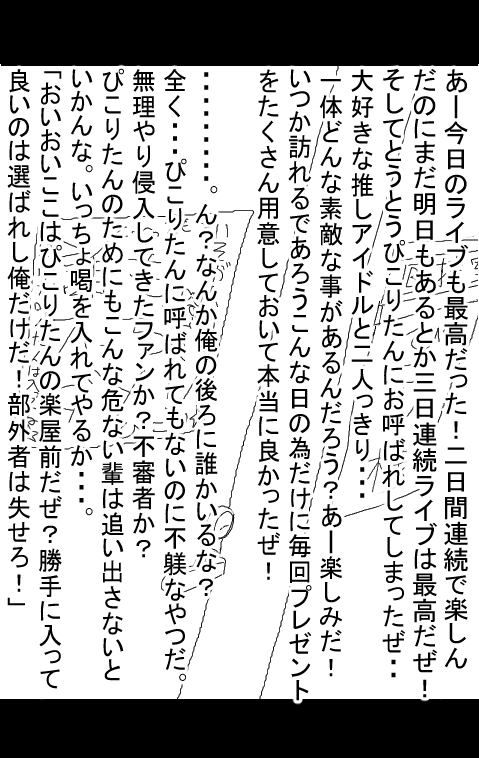 あー今日のライブも最高だった！二日間連続で楽しん
だのにまだ明日もあるとか三日連続ライブは最高だぜ！
そしてとうとうぴこりたんにお呼ばれしてしまったぜ・・
大好きな推しアイドルと二人っきり・・・
一体どんな素敵な事があるんだろう？あー楽しみだ！
いつか訪れるであろうこんな日の為だけに毎回プレゼント
をたくさん用意しておいて本当に良かったぜ！
・・・・・・・・。ん？なんか俺の後ろに誰かいるな？
全く・・・ぴこりたんに呼ばれてもないのに不躾なやつだ。
無理やり侵入してきたファンか？不審者か？
ぴこりたんのためにもこんな危ない輩は追い出さないと
いかんな。いっちょ喝を入れてやるか・・・。
「おいおいここはぴこりたんの楽屋前だぜ？勝手に入って
良いのは選ばれし俺だけだ！部外者は失せろ！」